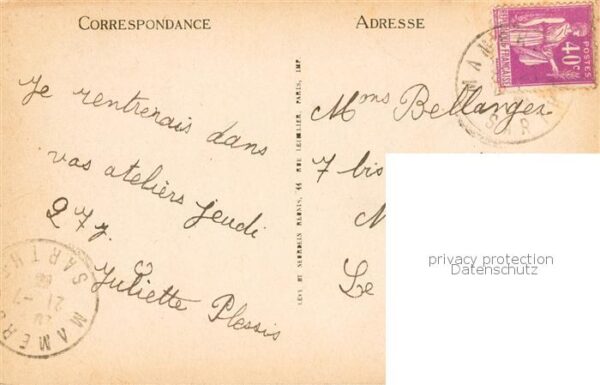 CORRESPONDANCE
ADRESSE
Je rentrerais dans
vos ateliers Jeudi
27 J.
Juliette Plessis
LEVY ET NEURDEIN REUNIS, 44 RUE LETELLIER, PARIS, IMP.
Mms Bellanger
7 bis
Le
POSTES
40c
REPUBLIQUE FRANCAISE
MAMERS
SAR
MAMERS
SARTHE
21-7
privacy protection
Datenschutz